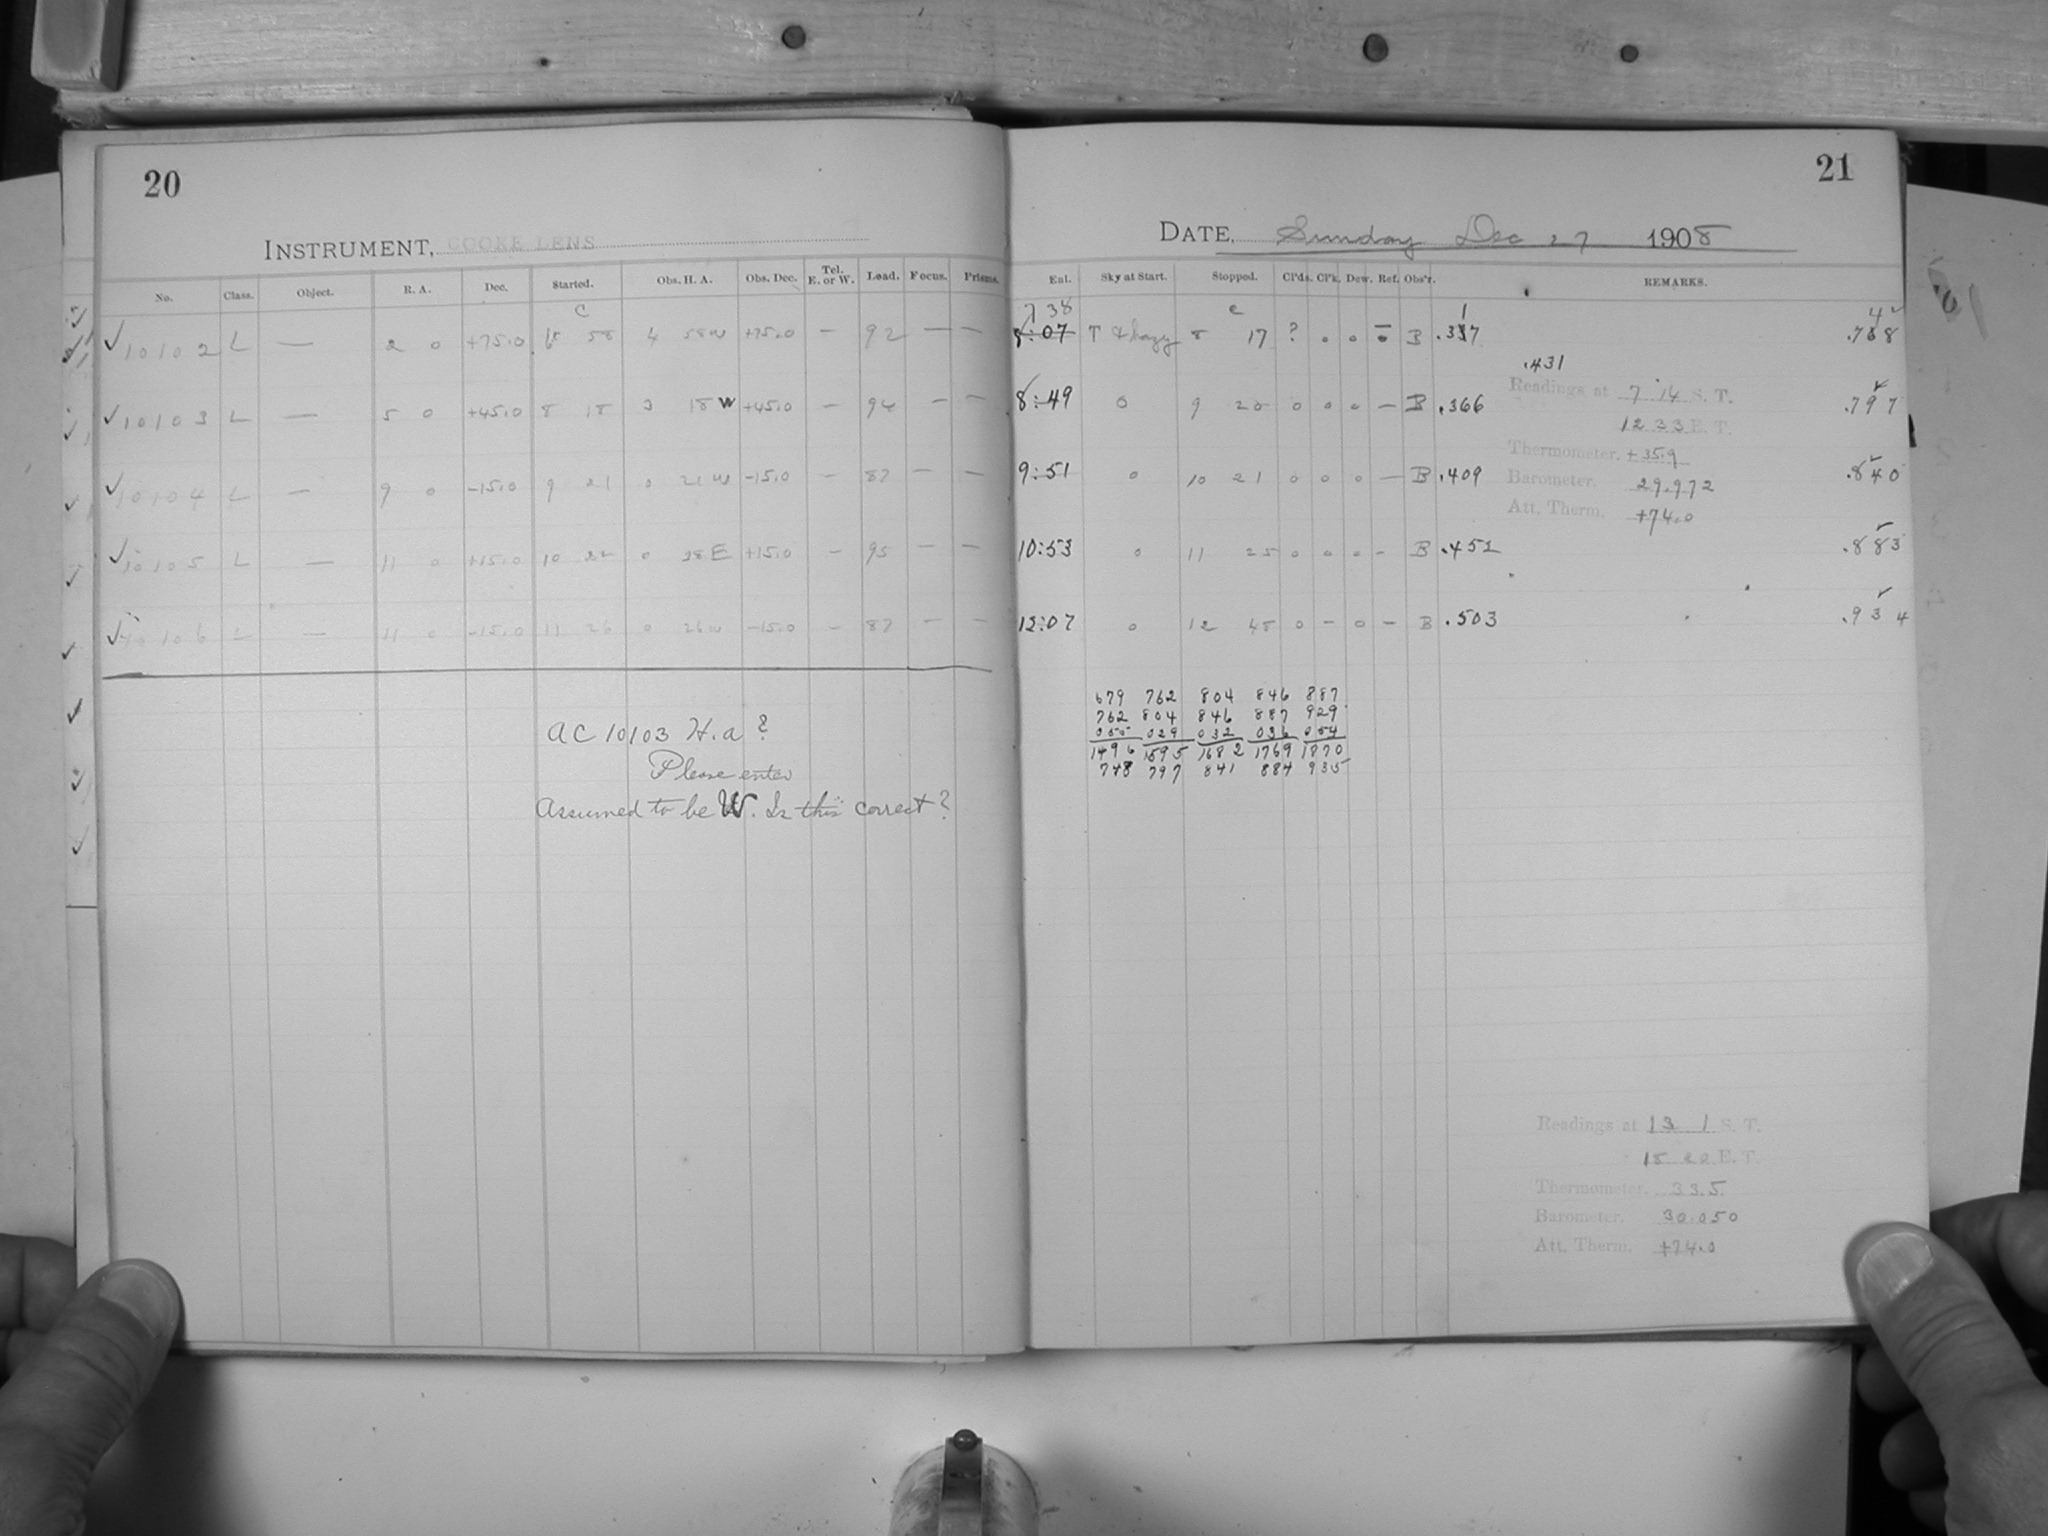 20
INSTRUMENT, COOKE LENS
No. Class. Object. R. A. Dec. Started. Obs. H. A. Obs. Dec. Tel. E. or W. Load. Focus. Prisms.
C
✓ 10102 L — 2 0 +75.0 58 4 58 W +75.0 — 92 — —
✓ 10103 L — 5 0 +45.0 8 18 3 18 W +45.0 — 94 — —
✓ 10104 L — 9 0 -15.0 9 21 0 21 W -15.0 — 87 — —
✓ 10105 L — 11 0 +15.0 10 22 0 38 E +15.0 — 95 — —
✓ 10106 L — 11 0 -15.0 11 26 0 26 W -15.0 — 87 — —
AC 10103 H.a?
Please enter
Assumed to be W. Is this correct?
21
DATE, Sunday Dec 27 1908
Eal. Sky at Start. Stopped. Cl'ds. Cl'k. Dew. Ref. Obs'r. REMARKS.
7 38 c 1 4 ✓
8:07 T & hazy 8 17 ? 0 0 B .337 .768
.431
8:49 0 9 20 0 0 0 — B .366 .797
9:51 0 10 21 0 0 0 — B .409 .840
10:53 0 11 25 0 0 0 - B .452 .883
12:07 0 12 45 0 - 0 - B .503 .934
Readings at 7 14 S. T.
12 33 E. T.
Thermometer. +35.9
Barometer. 29.972
Att. Therm. +74.0
679 762 804 846 887
762 804 846 887 929
055 029 032 036 054
1496 1595 1682 1769 1870
748 797 841 884 935
Readings at 13 1 S. T.
E. T.
Thermometer. 33.5
Barometer. 30.050
Att. Therm. +74.0